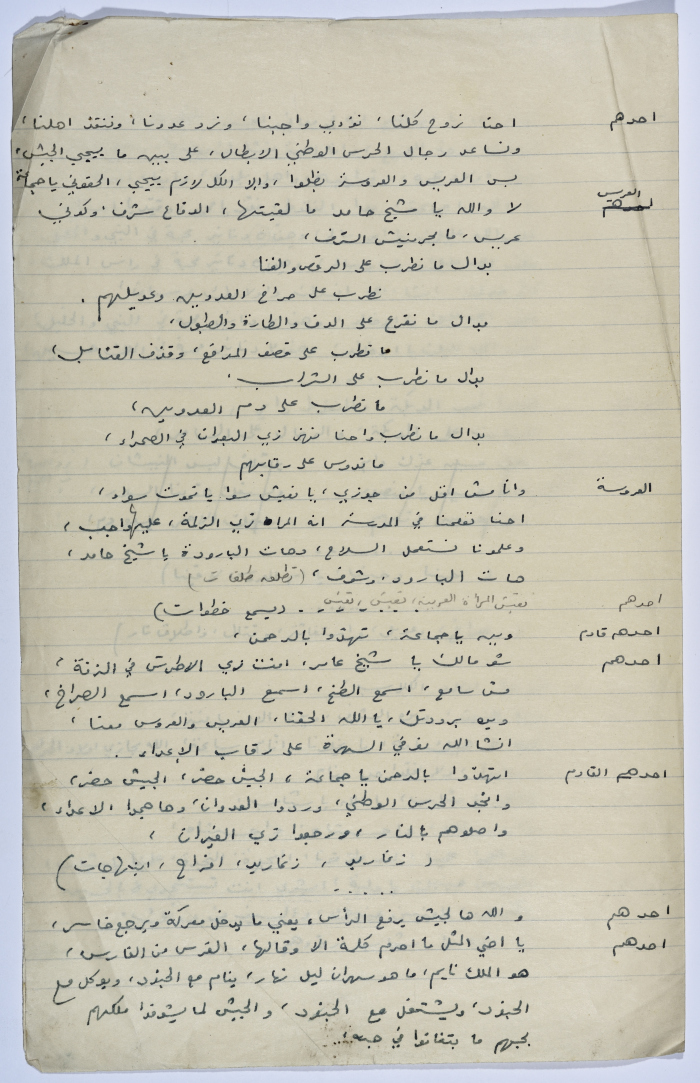 احدهم احنا نروح كلنا، نؤدي واجبنا، ونرد عدونا، وننقذ اهلنا،
ونساعد رجال الحرس الوطني الابطال، على بين ما ييجي الجيش،
بس العريس والعروسة يظلوا، والا الكل لازم ييجي، الحقوني يا جماعة
العريس لا والله يا شيخ حامد ما لقيتها، الدفاع شرف، وكوني
عريس، ما بحرمنيش الشرف،
بدال ما نطرب على الرقص والغنا
نطرب على صراخ العدوين وعويلهم.
بدال ما نقرع على الدف والطارة والطبول،
ما نطرب على قصف المدافع، وقذف القنابل،
بدال ما نطرب على الشراب.
ما نطرب على دم العدوين،
بدال ما نطرب واحنا نهز زي البعران في الصحراء،
ما ندوس على رقابهم
العروسة وانا مش اقل من جوزي، يا نعيش سوا يا نموت سواء،
احنا تعلمنا في المدرسة انه المراة زي الزلمة، عليها واجب،
وعلمونا نستعمل السلاح، وهات البارودة يا شيخ حامد،
هات البارود، وشوف، (تطلعه طلقات)
احدهم تعيش المراة العربية، تعيش، تعيش. (يسمع خطوات)
احدهم قادم وين يا جماعة، تهدّوا بالرحمن،
احدهم شو مالك يا شيخ عامر، انت زي الاطرش في الزفة،
مش سامع، اسمع الطخ، اسمع البارود، اسمع الصراخ،
وين برودتك، يا الله الحقنا، العريس والعروس معنا،
انشا الله نوفي السهرة على رقاب الاعداء.
احدهم القادم اتهدّوا بالرحمن يا جماعة، الجيش حضر، الجيش حضر،
وانجد الحرس الوطني، وردوا العدوان، وهاجموا الاعداء،
واصلوهم بالنار، ورجعوا زي الفيران،
(زغاريد، زغاريد، افراح، ابتهاجات)
.....
احدهم والله هالجيش برفع الراس، يعني ما يدخل معركة ويرجع خاسر،
احدهم يا اخي المثل ما احرم كلمة الا وقالها، الفرس من الفارس،
هو الملك نايم، ما هو سهران ليل نهار، ينام مع الجنود، ويوكل مع
الجنود، ويشتغل مع الجنود، والجيش لما يشوفوا ملكهم
بحبهم ما بتفانوا في حبه،....